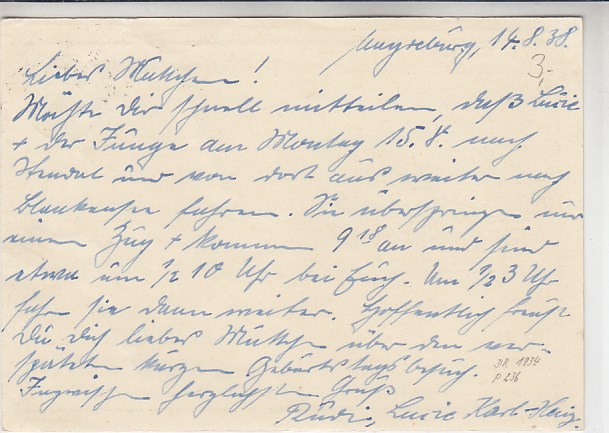 Magdeburg, 14.8.38.
3,-
Liebes Muttchen!
Möchte Dir schnell mitteilen, daß Lucie
+ der Junge am Montag 15.8. nach
Stendal und von dort aus weiter nach
Blankensee fahren. Sie überspringen nur
einen Zug + kommen 9 18 an und sind
etwa um 1/2 10 Uhr bei Euch. Um 1/2 3 Uhr
fahren sie dann weiter. Hoffentlich freust
Du Dich liebes Muttchen über den ver-
späteten kurzen Geburtstagsbesuch.
DR 1934
P 236
Inzwischen herzlichsten Gruß
Rudi, Lucie Karl-Heinz.